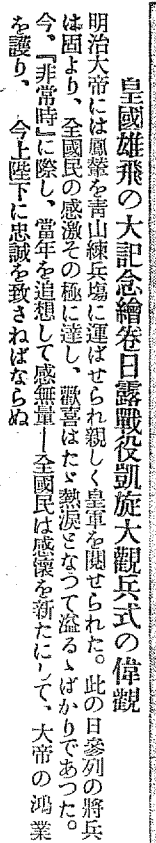 皇國雄飛の大記念繪卷日露戰役凱旋大觀兵式の偉觀
明治大帝には鳳輦を青山練兵場に運ばせられ親しく皇軍を閲せられた。此の日參列の將兵
は固より、全國民の感激その極に達し、歡喜はたゞ熱涙となつて溢るゝばかりであつた。
今、『非常時』に際し、當年を追想して感無量―全國民は感懷を新たにして、大帝の鴻業
を護り、今上陛下に忠誠を致さねばならぬ